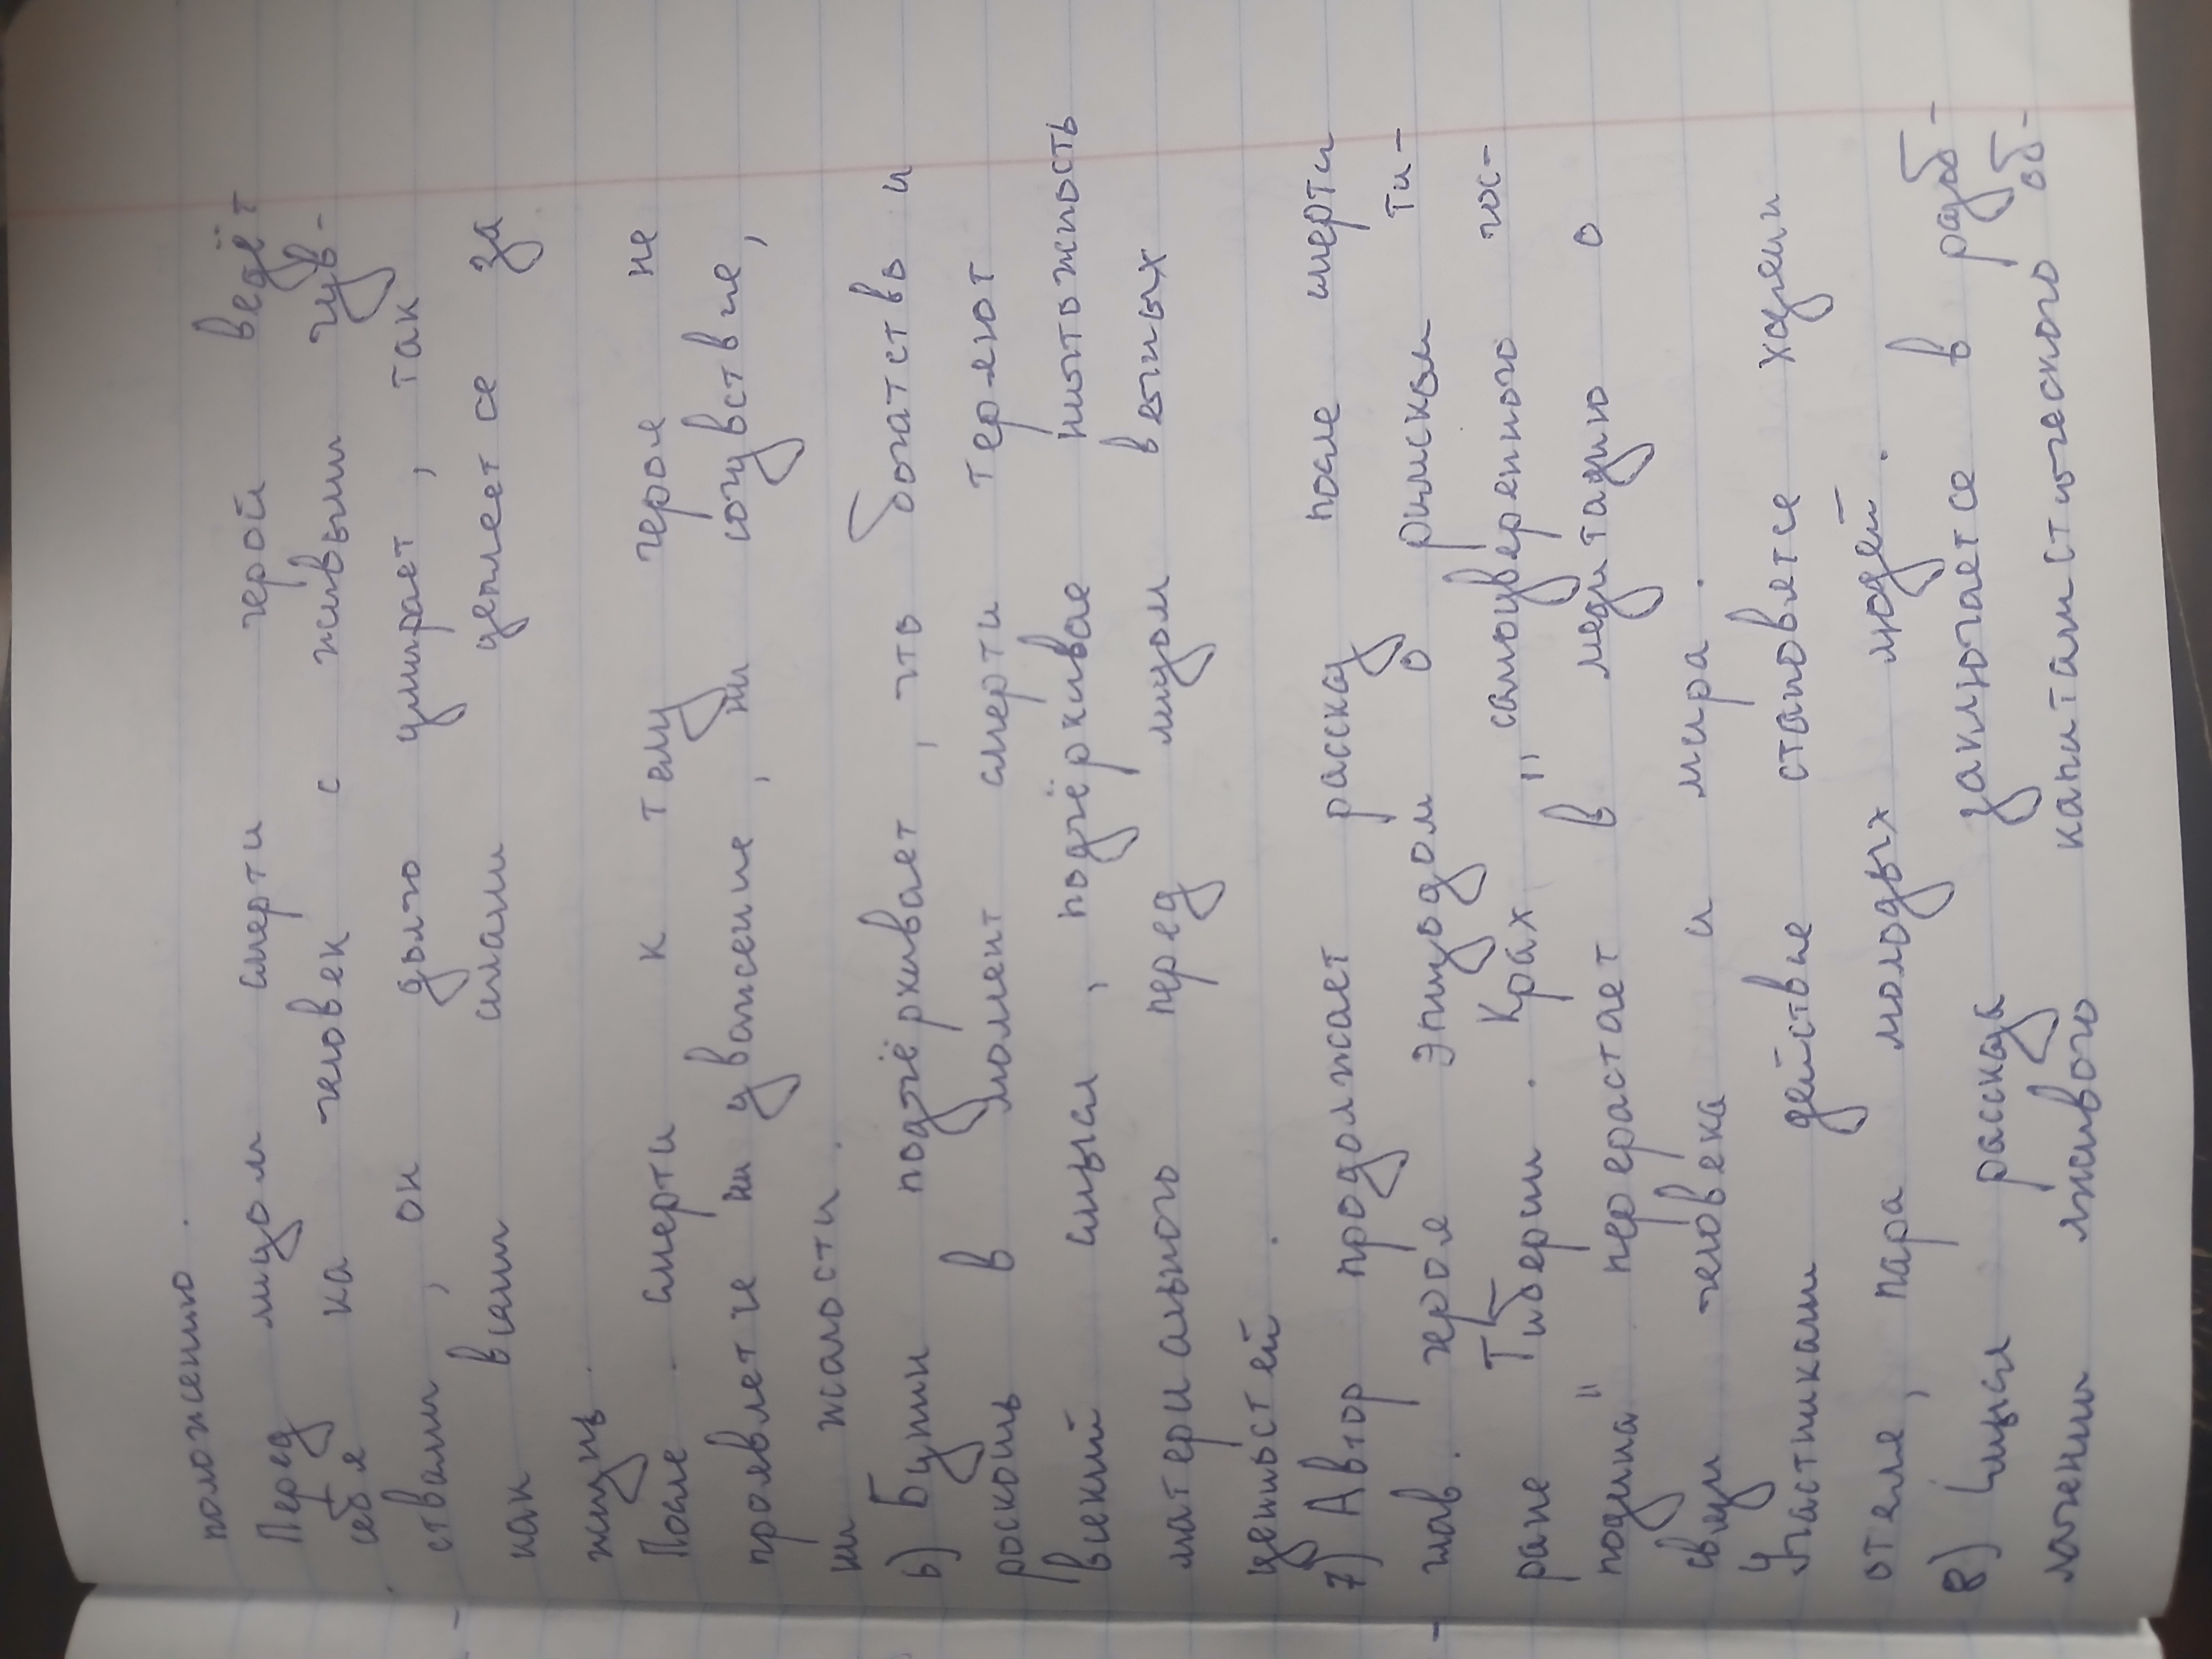 положению.
Перед лицом смерти герой ведёт
себя как человек с живыми чув-
ствами, он долго умирает, так
как всеми силами цепляется за
жизнь.
После смерти к телу героя не
проявляется ни уважение, ни сочувствие,
ни жалости.
6) Бунин подчёркивает, что богатств и
роскошь в момент смерти теряют
всякий смысл, подчёркивае ничтожность
материального перед лицом вечных
ценностей.
7) Автор продолжает рассказ после смерти
глав. героя эпизодом о римском ти-
ране Тиберии. Крах „самоуверенного гос-
подина" перерастает в медитацию о
связи человека и мира.
Участниками действие становятся хозяин
отеля, пара молодых людей.
8) Смысл рассказа заключается в разоб-
лачении лживого капиталистического об-